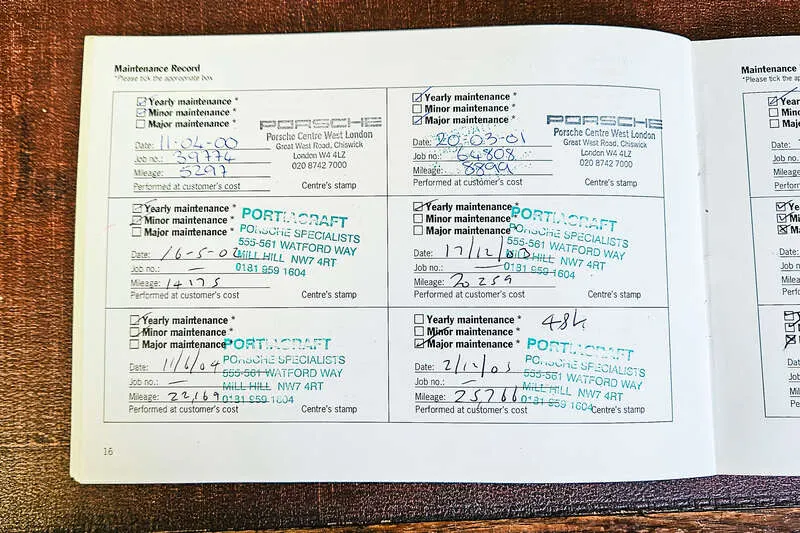 Maintenance Record
*Please tick the appropriate box
Yearly maintenance *
Minor maintenance *
Major maintenance *
Date: 11-04-00
Job no.: 39774
Mileage: 5297
Performed at customer's cost
PORSCHE
Porsche Centre West London
Great West Road, Chiswick
London W4 4LZ
020 8742 7000
Centre's stamp
Yearly maintenance *
Minor maintenance *
Major maintenance *
Date: 20-03-01
Job no.: 64808
Mileage: 8899
Performed at customer's cost
PORSCHE
Porsche Centre West London
Great West Road, Chiswick
London W4 4LZ
020 8742 7000
Centre's stamp
Yearly maintenance *
Minor maintenance *
Major maintenance *
Date: 16-5-02
Job no.: —
Mileage: 14175
Performed at customer's cost
PORTIACRAFT
PORSCHE SPECIALISTS
555-561 WATFORD WAY
MILL HILL NW7 4RT
0181 959 1604
Centre's stamp
Yearly maintenance *
Minor maintenance *
Major maintenance
Date: 17/12/03
Job no.: —
Mileage: 20259
Performed at customer's cost
PORTIACRAFT
PORSCHE SPECIALISTS
555-561 WATFORD WAY
MILL HILL NW7 4RT
0181 959 1604
Centre's stamp
Yearly maintenance *
Minor maintenance *
Major maintenance
Date: 11/6/04
Job no.: —
Mileage: 22,169
Performed at customer's cost
PORTIACRAFT
PORSCHE SPECIALISTS
555-561 WATFORD WAY
MILL HILL NW7 4RT
0181 959 1604
Centre's stamp
Yearly maintenance * 48k
Minor maintenance *
Major maintenance
Date: 2/12/05
Job no.: —
Mileage: 25,766
Performed at customer's cost
PORTIACRAFT
PORSCHE SPECIALISTS
555-561 WATFORD WAY
MILL HILL NW7 4RT
0181 959 1604
Centre's stamp
16
Maintenance
*Please tick the
Date:
Job no.:
Mileage:
Performed
Date:
Job no.:
Mileage:
Performed
Date:
Job
Mile
Perf